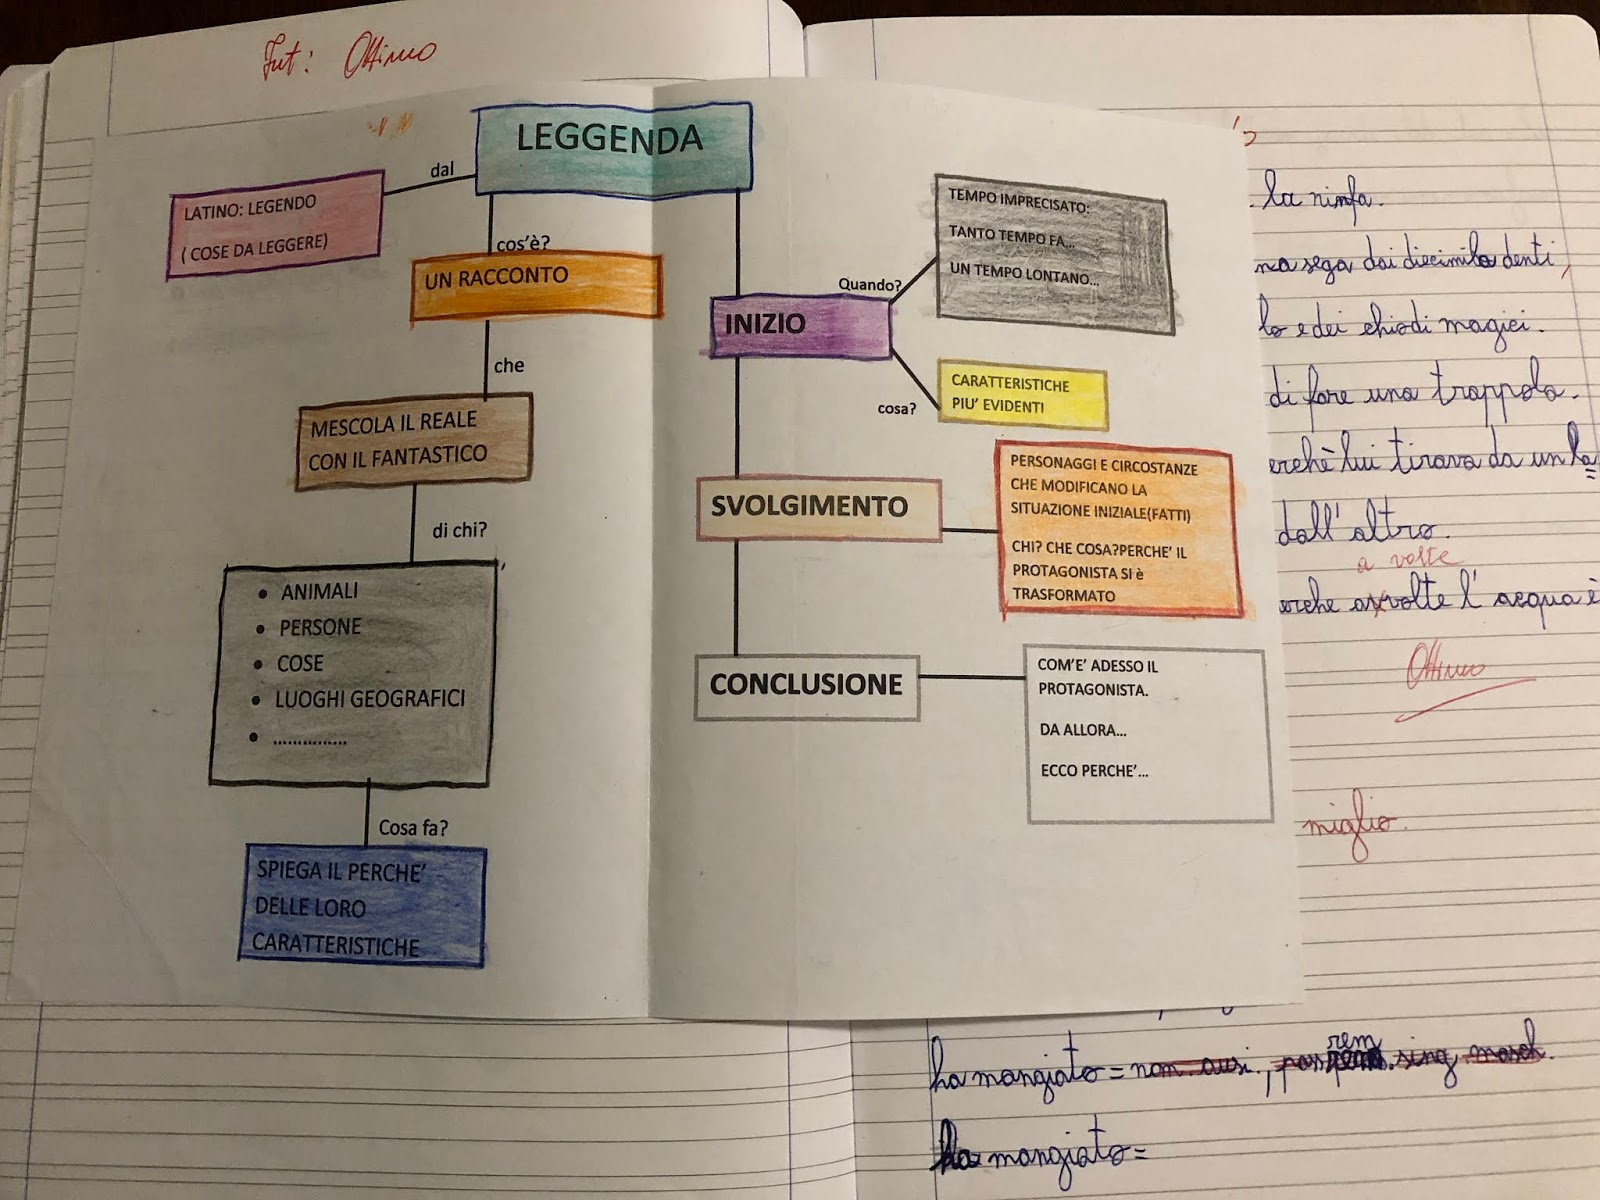 Int: Ottimo
LEGGENDA
dal
LATINO: LEGENDO
( COSE DA LEGGERE)
cos'è?
UN RACCONTO
che
MESCOLA IL REALE
CON IL FANTASTICO
di chi?
• ANIMALI
• PERSONE
• COSE
• LUOGHI GEOGRAFICI
• ...............
Cosa fa?
SPIEGA IL PERCHE'
DELLE LORO
CARATTERISTICHE
INIZIO
Quando?
TEMPO IMPRECISATO:
TANTO TEMPO FA...
UN TEMPO LONTANO...
cosa?
CARATTERISTICHE
PIU' EVIDENTI
SVOLGIMENTO
PERSONAGGI E CIRCOSTANZE
CHE MODIFICANO LA
SITUAZIONE INIZIALE(FATTI)
CHI? CHE COSA?PERCHE' IL
PROTAGONISTA SI è
TRASFORMATO
CONCLUSIONE
COM'E' ADESSO IL
PROTAGONISTA.
DA ALLORA...
ECCO PERCHE'...
la ninfa.
na sega dai diecimila denti,
lo e dei chiodi magici.
di fare una trappola.
erchè lui tirava da un la
dall'altro.
a volte
erche avolte l'acqua è
Ottimo
miglio.
rem
ha mangiato = non ausi., pass sing masch.
ha mangiato =